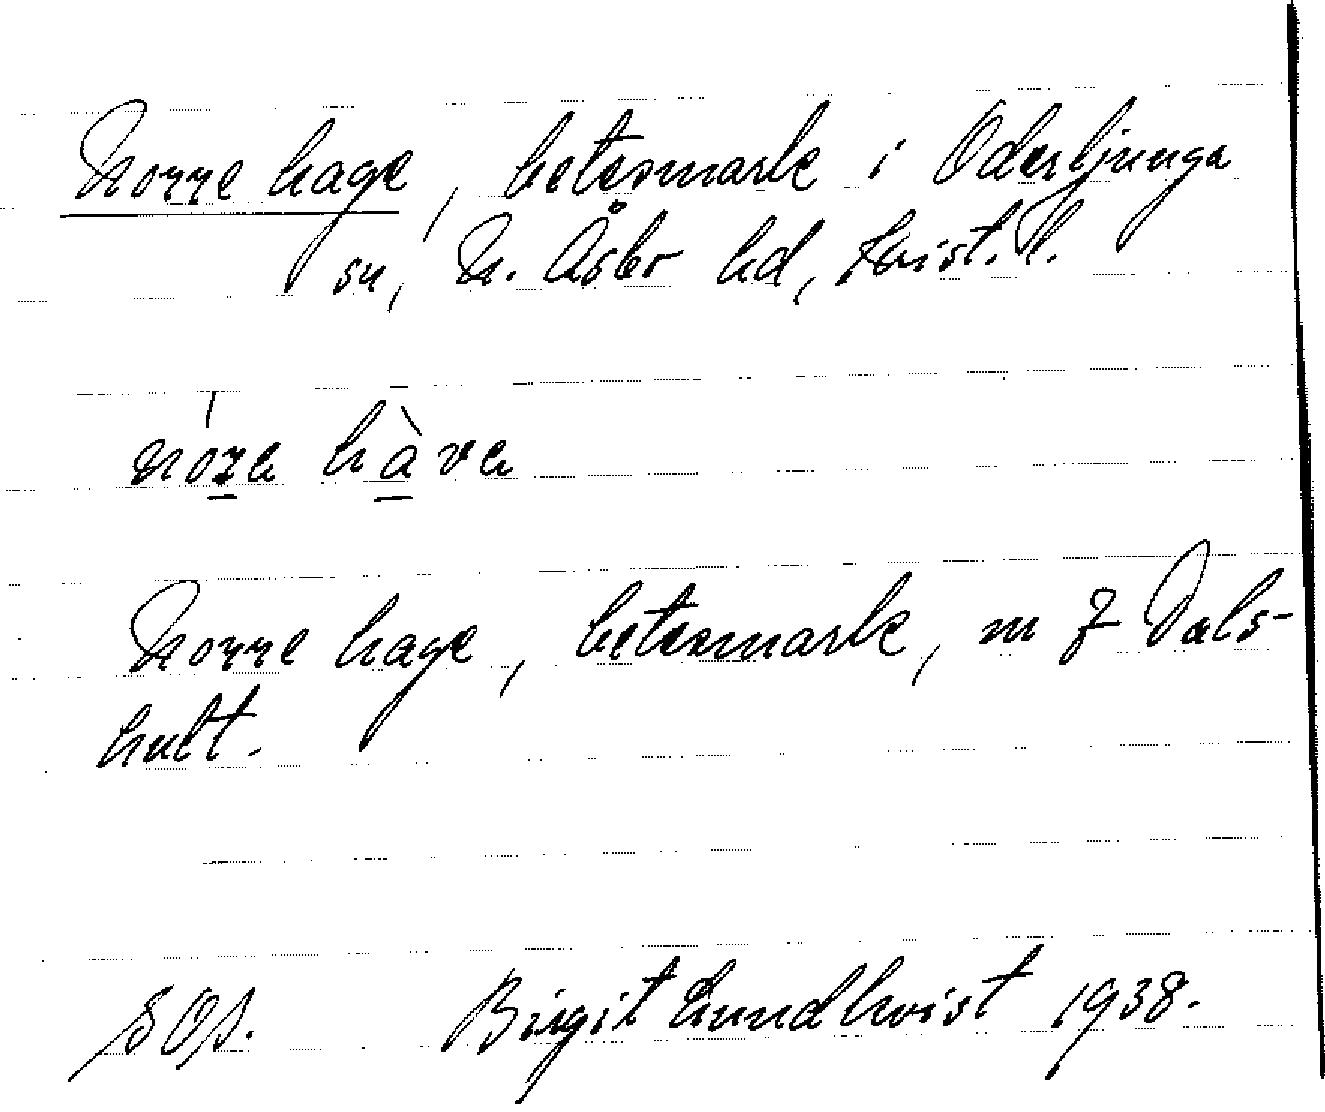 Norre hage, betesmark i Oderljunga
sn, N. Åsbo hd, Krist. l.
nóra hàva
Norre hage, betesmark, m f Dals-
hult.
SOJ. Birgit Lundkvist 1938.